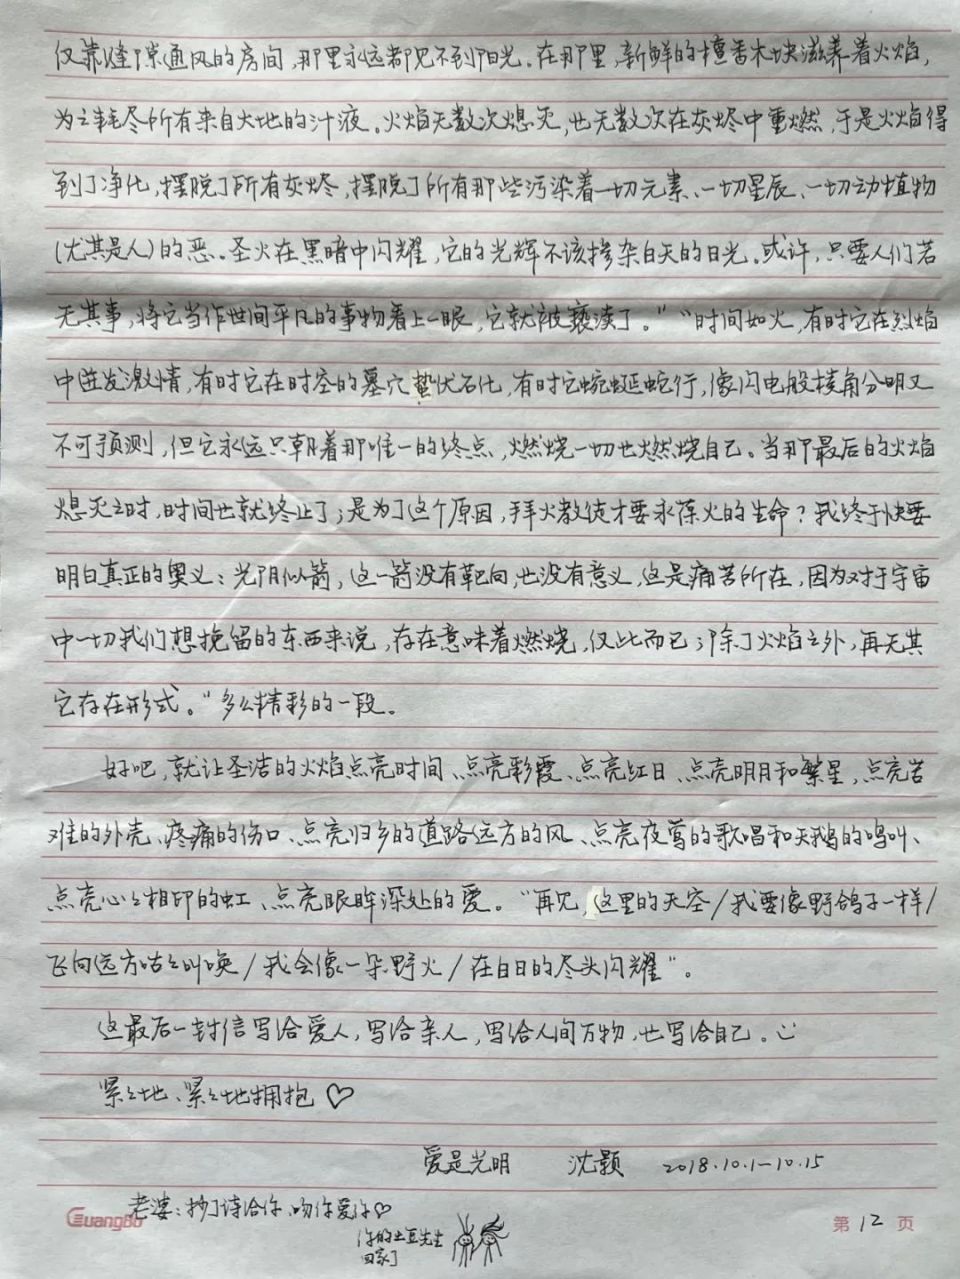 仅靠缝隙通风的房间，那里永远都见不到阳光。在那里，新鲜的檀香木块滋养着火焰，
为之耗尽所有来自大地的汁液。火焰无数次熄灭，也无数次在灰烬中重燃，于是火焰得
到了净化，摆脱了所有灰烬，摆脱了所有那些污染着一切元素、一切星辰、一切动植物
(尤其是人)的恶。圣火在黑暗中闪耀，它的光辉不该掺杂白天的日光。或许，只要人们若
无其事，将它当作世间平凡的事物看上一眼，它就被亵渎了。”“时间如火，有时它在烈焰
中迸发激情，有时它在时空的墓穴蛰伏石化，有时它蜿蜒蛇行，像闪电般棱角分明又
不可预测，但它永远只朝着那唯一的终点，燃烧一切也燃烧自己。当那最后的火焰
熄灭之时，时间也就终止了；是为了这个原因，拜火教徒才要永葆火的生命？我终于快要
明白真正的奥义：光阴似箭，这一箭没有靶向，也没有意义，这是痛苦所在，因为对于宇宙
中一切我们想挽留的东西来说，存在意味着燃烧，仅此而已；除了火焰之外，再无其
它存在形式。”多么精彩的一段。
好吧，就让圣洁的火焰点亮时间、点亮彩霞、点亮红日、点亮明月和繁星，点亮苦
难的外壳、疼痛的伤口、点亮归乡的道路远方的风、点亮夜莺的歌唱和天鹅的鸣叫、
点亮心心相印的虹、点亮眼眸深处的爱。“再见，这里的天空/我要像野鸽子一样/
飞向远方咕咕叫唤/我会像一朵野火/在白日的尽头闪耀”。
这最后一封信写给爱人，写给亲人，写给人间万物，也写给自己。
紧紧地、紧紧地拥抱♡
爱是光明 沈颢 2018.10.1—10.15
老婆：抄了诗给你、吻你爱你♡
你的土豆先生
回家了
GuangBo
第12页